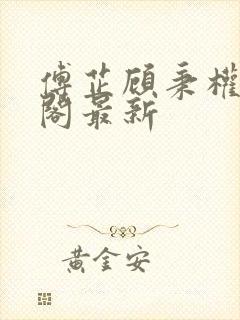 傅芷顾秉權
阁最新
黄金安